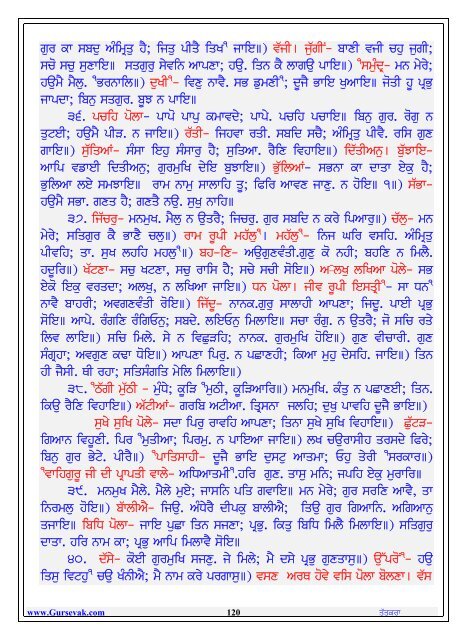 ਗੁਰ ਕਾ ਸਬਦੁ ਅੰਮ੍ਰਿਤੁ ਹੈ; ਜਿਤੁ ਪੀਤੈ ਤਿਖਾਂ ਜਾਇ॥) ਵੱਜੀ। ਜੁੱਗੀਂ- ਬਾਣੀ ਵਜੀ ਚਹੁ ਜੁਗੀ;
ਸਚੋ ਸਚੁ ਸੁਣਾਇ॥ ਸਤਗੁਰੁ ਸੇਵਨਿ ਆਪਣਾ; ਹਉ. ਤਿਨ ਕੈ ਲਾਗਉ ਪਾਇ॥) ਸਮੁੰਦ੍ਰ- ਮਨ ਮੇਰੇ;
ਹਉਮੈ ਮੈਲੁ. ਭਰਨਾਲਿ॥) ਦੁਖੀ- ਵਿਣੁ ਨਾਵੈ. ਸਭ ਡੁਮਣੀ; ਦੂਜੈ ਭਾਇ ਖੁਆਇ॥ ਜੋਤੀ ਹੂ ਪ੍ਰਭੁ
ਜਾਪਦਾ; ਬਿਨੁ ਸਤਗੁਰ. ਬੂਝ ਨ ਪਾਇ॥
੩੬. ਪਚਹਿ ਪੋਲਾ- ਪਾਪੋ ਪਾਪੁ ਕਮਾਵਦੇ; ਪਾਪੇ. ਪਚਹਿ ਪਚਾਇ॥ ਬਿਨੁ ਗੁਰ. ਰੋਗੁ ਨ
ਤੁਟਈ; ਹਉਮੈ ਪੀੜ. ਨ ਜਾਇ॥) ਰੱਤੀ- ਜਿਹਵਾ ਰਤੀ. ਸਬਦਿ ਸਚੈ; ਅੰਮ੍ਰਿਤੁ ਪੀਵੈ. ਰਸਿ ਗੁਣ
ਗਾਇ॥) ਸੁੱਤਿਆਂ- ਸੰਸਾ ਇਹੁ ਸੰਸਾਰੁ ਹੈ; ਸੁਤਿਆ. ਰੈਣਿ ਵਿਹਾਇ॥) ਦਿੱਤੀਅਨੁ। ਬੁੱਝਾਇ-
ਆਪਿ ਵਡਾਈ ਦਿਤੀਅਨੁ; ਗੁਰਮੁਖਿ ਦੇਇ ਬੁਝਾਇ॥) ਭੁੱਲਿਆਂ- ਸਭਨਾ ਕਾ ਦਾਤਾ ਏਕੁ ਹੈ;
ਭੁਲਿਆ ਲਏ ਸਮਝਾਇ॥ ਰਾਮ ਨਾਮੁ ਸਾਲਾਹਿ ਤੂ; ਫਿਰਿ ਆਵਣ ਜਾਣੁ. ਨ ਹੋਇ॥ ੧॥) ਸੱਭਾ-
ਹਉਮੈ ਸਭਾ. ਗਣਤ ਹੈ; ਗਣਤੈ ਨਉ. ਸੁਖੁ ਨਾਹਿ॥
੩੭. ਜਿੱਚਰੁ- ਮਨਮੁਖ. ਮੈਲੁ ਨ ਉਤਰੈ; ਜਿਚਰੁ. ਗੁਰ ਸਬਦਿ ਨ ਕਰੇ ਪਿਆਰੁ॥) ਚੱਲੁ- ਮਨ
ਮੇਰੇ; ਸਤਿਗੁਰ ਕੈ ਭਾਣੈ ਚਲੁ॥) ਰਾਮ ਰੂਪੀ ਮਹੱਲੁ। ਮਹੱਲੁ- ਨਿਜ ਘਰਿ ਵਸਹਿ. ਅੰਮ੍ਰਿਤੁ
ਪੀਵਹਿ; ਤਾ. ਸੁਖ ਲਹਹਿ ਮਹਲੁ॥) ਬਹ-ਣਿ- ਅਉਗੁਣਵੰਤੀ.ਗੁਣੁ ਕੋ ਨਹੀ; ਬਹਣਿ ਨ ਮਿਲੈ.
ਹਦੂਰਿ॥) ਖੱਟਣਾ- ਸਚੁ ਖਟਣਾ, ਸਚੁ ਰਾਸਿ ਹੈ; ਸਚੇ ਸਚੀ ਸੋਇ॥) ਅ-ਲਖੁ ਲਖਿਆ ਪੋਲੇ- ਸਭ
ਏਕੋ ਇਕੁ ਵਰਤਦਾ; ਅਲਖੁ, ਨ ਲਖਿਆ ਜਾਇ॥) ਧਨ ਪੋਲਾ। ਜੀਵ ਰੂਪੀ ਇਸਤ੍ਰੀ- ਸਾ ਧਨ
ਨਾਵੈ ਬਾਹਰੀ; ਅਵਗਣਵੰਤੀ ਰੋਇ॥) ਜਿੰਦੂ- ਨਾਨਕ.ਗੁਰੁ ਸਾਲਾਹੀ ਆਪਣਾ; ਜਿਦੂ. ਪਾਈ ਪ੍ਰਭੁ
ਸੋਇ॥ ਆਪੇ. ਰੰਗਣਿ ਰੰਗਿਓਨੁ; ਸਬਦੇ. ਲਇਓਨੁ ਮਿਲਾਇ॥ ਸਚਾ ਰੰਗੁ. ਨ ਉਤਰੈ; ਜੋ ਸਚਿ ਰਤੇ
ਲਿਵ ਲਾਇ॥) ਸਚਿ ਮਿਲੇ. ਸੇ ਨ ਵਿਛੁੜਹਿ; ਨਾਨਕ. ਗੁਰਮੁਖਿ ਹੋਇ॥) ਗੁਣ ਵੀਚਾਰੀ. ਗੁਣ
ਸੰਗ੍ਰਹਾ; ਅਵਗੁਣ ਕਢਾ ਧੋਇ॥) ਆਪਣਾ ਪਿਰੁ. ਨ ਪਛਾਣਹੀ; ਕਿਆ ਮੁਹੁ ਦੇਸਹਿ. ਜਾਇ॥) ਤਿਨ
ਹੀ ਜੈਸੀ. ਥੀ ਰਹਾ; ਸਤਿਸੰਗਤਿ ਮੇਲਿ ਮਿਲਾਇ॥)
੩੮. ਠੱਗੀ ਮੁੱਠੀ - ਮੁੰਧੇ; ਕੂੜਿ ਮੁਠੀ, ਕੂੜਿਆਰਿ॥) ਮਨਮੁਖਿ. ਕੰਤੁ ਨ ਪਛਾਣਈ; ਤਿਨ.
ਕਿਉ ਰੈਣਿ ਵਿਹਾਇ॥) ਅੱਟੀਆਂ- ਗਰਬਿ ਅਟੀਆ. ਤ੍ਰਿਸਨਾ ਜਲਹਿ; ਦੁਖੁ ਪਾਵਹਿ ਦੂਜੈ ਭਾਇ॥)
ਸੁਖੇ ਸੁਖਿ ਪੋਲੇ- ਸਦਾ ਪਿਰੁ ਰਾਵਹਿ ਆਪਣਾ; ਤਿਨਾ ਸੁਖੇ ਸੁਖਿ ਵਿਹਾਇ॥) ਛੁੱਟੜ-
ਗਿਆਨ ਵਿਹੂਣੀ. ਪਿਰ ਮੁਤੀਆ; ਪਿਰਮੁ. ਨ ਪਾਇਆ ਜਾਇ॥) ਲਖ ਚਉਰਾਸੀਹ ਤਰਸਦੇ ਫਿਰੇ;
ਬਿਨੁ ਗੁਰ ਭੇਟੇ. ਪੀਰੈ॥) ਪਾਤਿਸਾਹੀ- ਦੂਜੈ ਭਾਇ ਦੁਸਟੁ ਆਤਮਾ; ਓਹੁ ਤੇਰੀ ਸਰਕਾਰ॥)
ਵਾਹਿਗੁਰੂ ਜੀ ਦੀ ਪ੍ਰਾਪਤੀ ਵਾਲੇ- ਅਧਿਆਤਮੀ.ਹਰਿ ਗੁਣ. ਤਾਸੁ ਮਨਿ; ਜਪਹਿ ਏਕੁ ਮੁਰਾਰਿ॥
੩੯. ਮਨਮੁਖ ਮੈਲੇ. ਮੈਲੇ ਮੁਏ; ਜਾਸਨਿ ਪਤਿ ਗਵਾਇ॥ ਮਨ ਮੇਰੇ; ਗੁਰ ਸਰਣਿ ਆਵੈ, ਤਾ
ਨਿਰਮਲੁ ਹੋਇ॥) ਬਾੱਲੀਐ- ਜਿਉ. ਅੰਧੇਰੈ ਦੀਪਕੁ ਬਾਲੀਐ; ਤਿਉ ਗੁਰ ਗਿਆਨਿ. ਅਗਿਆਨੁ
ਤਜਾਇ॥) ਬਿਧਿ ਪੋਲਾ- ਜਾਇ ਪੁਛਾ ਤਿਨ ਸਜਣਾ; ਪ੍ਰਭੁ. ਕਿਤੁ ਬਿਧਿ ਮਿਲੈ ਮਿਲਾਇ॥) ਸਤਿਗੁਰੁ
ਦਾਤਾ. ਹਰਿ ਨਾਮ ਕਾ; ਪ੍ਰਭੁ ਆਪਿ ਮਿਲਾਵੈ ਸੋਇ॥
੪੦. ਦੱਸੇ- ਕੋਈ ਗੁਰਮੁਖਿ ਸਜਣੁ. ਜੇ ਮਿਲੇ; ਮੈ ਦਸੇ ਪ੍ਰਭੁ ਗੁਣਤਾਸੁ॥) ਉੱਪਰੋਂ- ਹਉ
ਤਿਸੁ ਵਿਟਹੁ ਚਉ ਖੰਨੀਐ; ਮੈ ਨਾਮ ਕਰੇ ਪਰਗਾਸੁ॥) ਵਸਣ ਅਰਥ ਹੋਵੇ ਵਸਿ ਪੋਲਾ ਬੋਲਣਾ। ਵੱਸ
www.Gursevak.com 120 ਤੱਤਕਰਾ